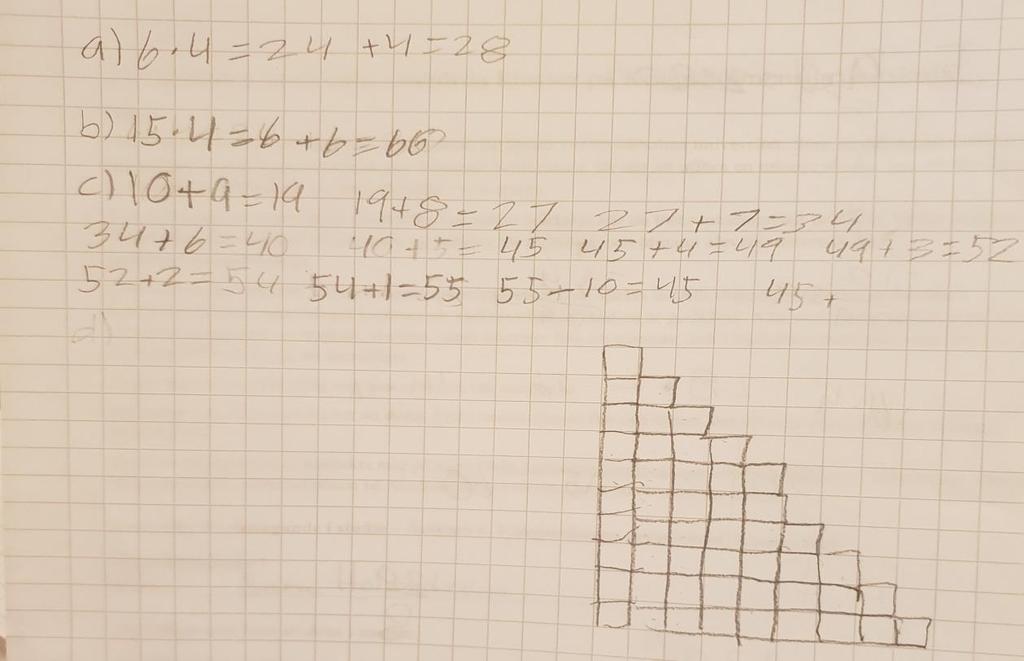 a) 6·4=24 +4=28
b) 15·4=6 +6=66
c) 10+9=19 19+8=27 27+7=34
34+6=40 40+5=45 45+4=49 49+3=52
52+2=54 54+1=55 55-10=45 45+
d)